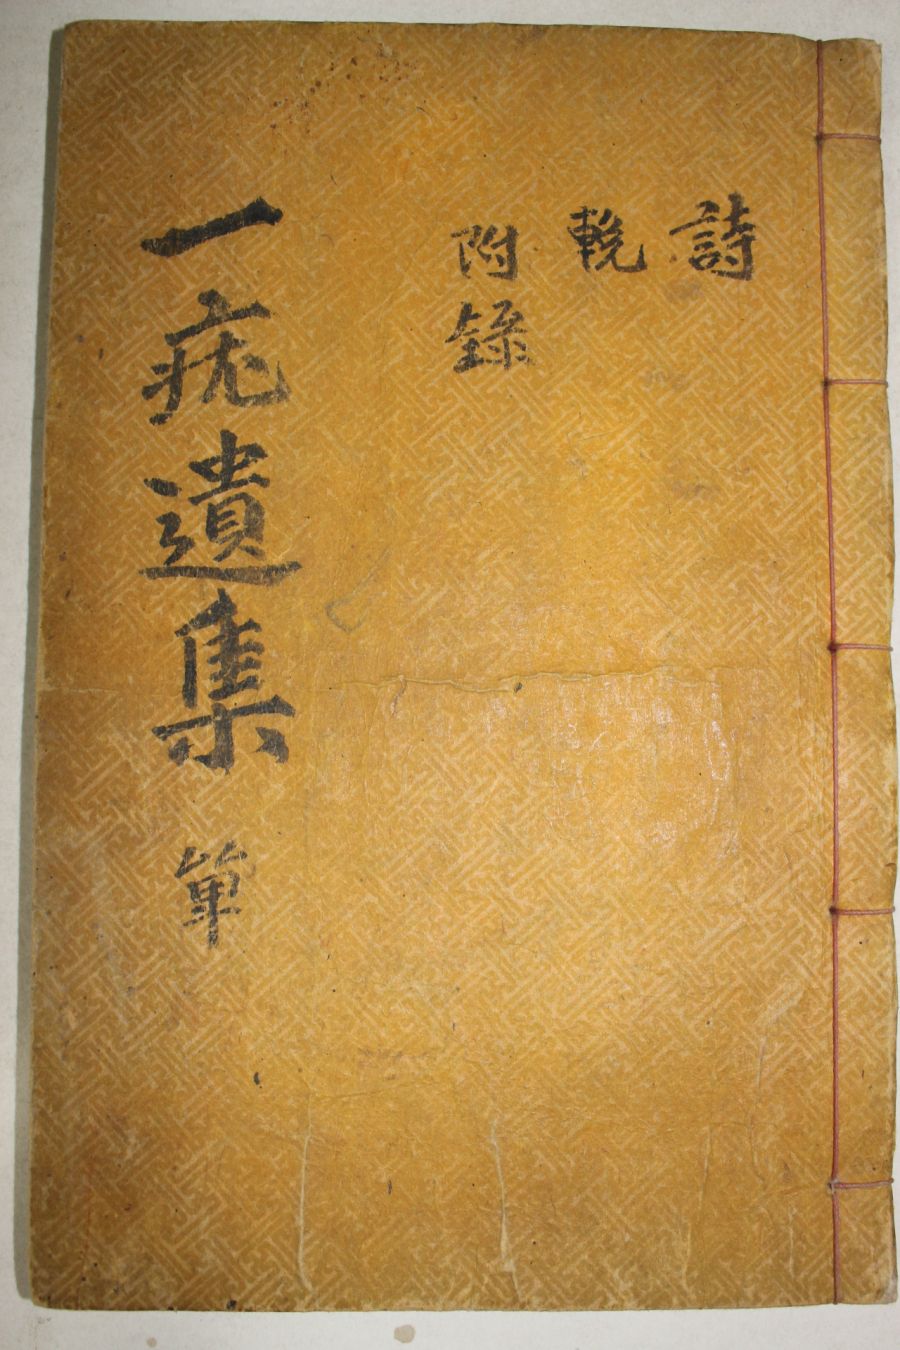 詩
輓
附錄
一疣遺集 單